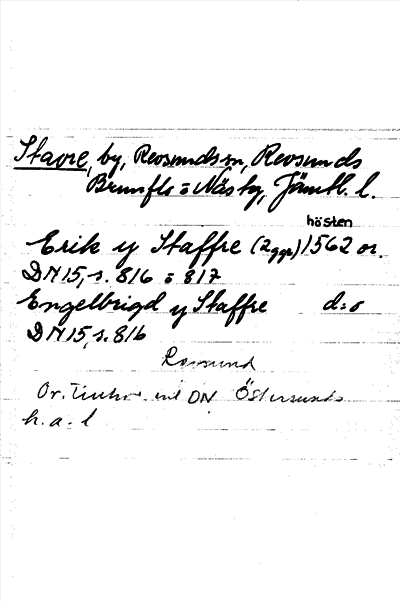 Stavre, by, Revsunds sn, Revsunds
Brunflo o Näs tg, Jämtl. l.
hösten
Erik y Staffre (2 ggr) 1562 or.
DN 15, s. 816 o 817
Engelbrigd y Staffre d:o
DN 15, s. 816
Rosmund
Or. enl DN Östersunds
h. a. l